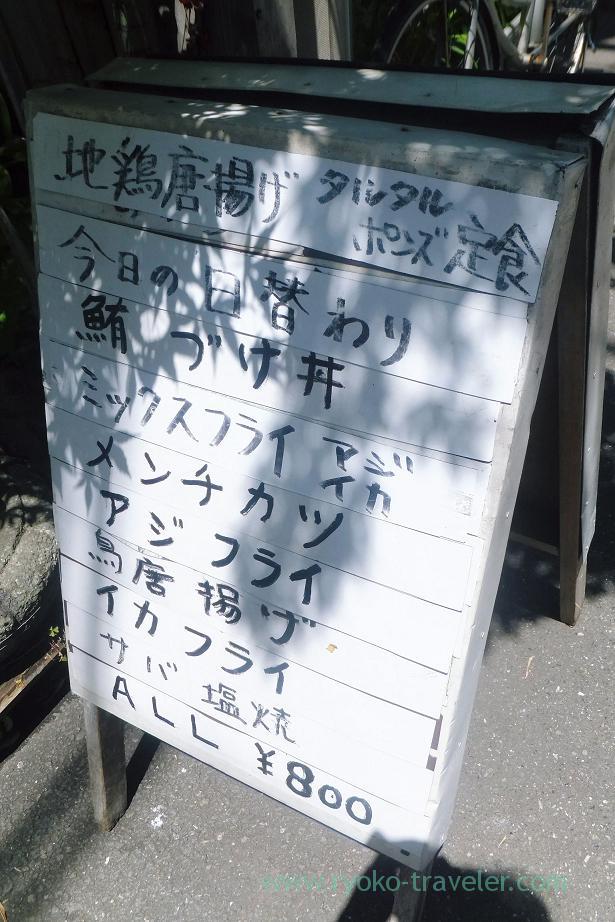 地鶏唐揚げ タルタル
ポンズ 定食
今日の日替わり
鮪づけ丼
ミックスフライ アジ
イカ
メンチカツ
アジフライ
鳥唐揚げ
イカフライ
サバ塩焼
ALL ¥800
www.ryoko-traveler.com